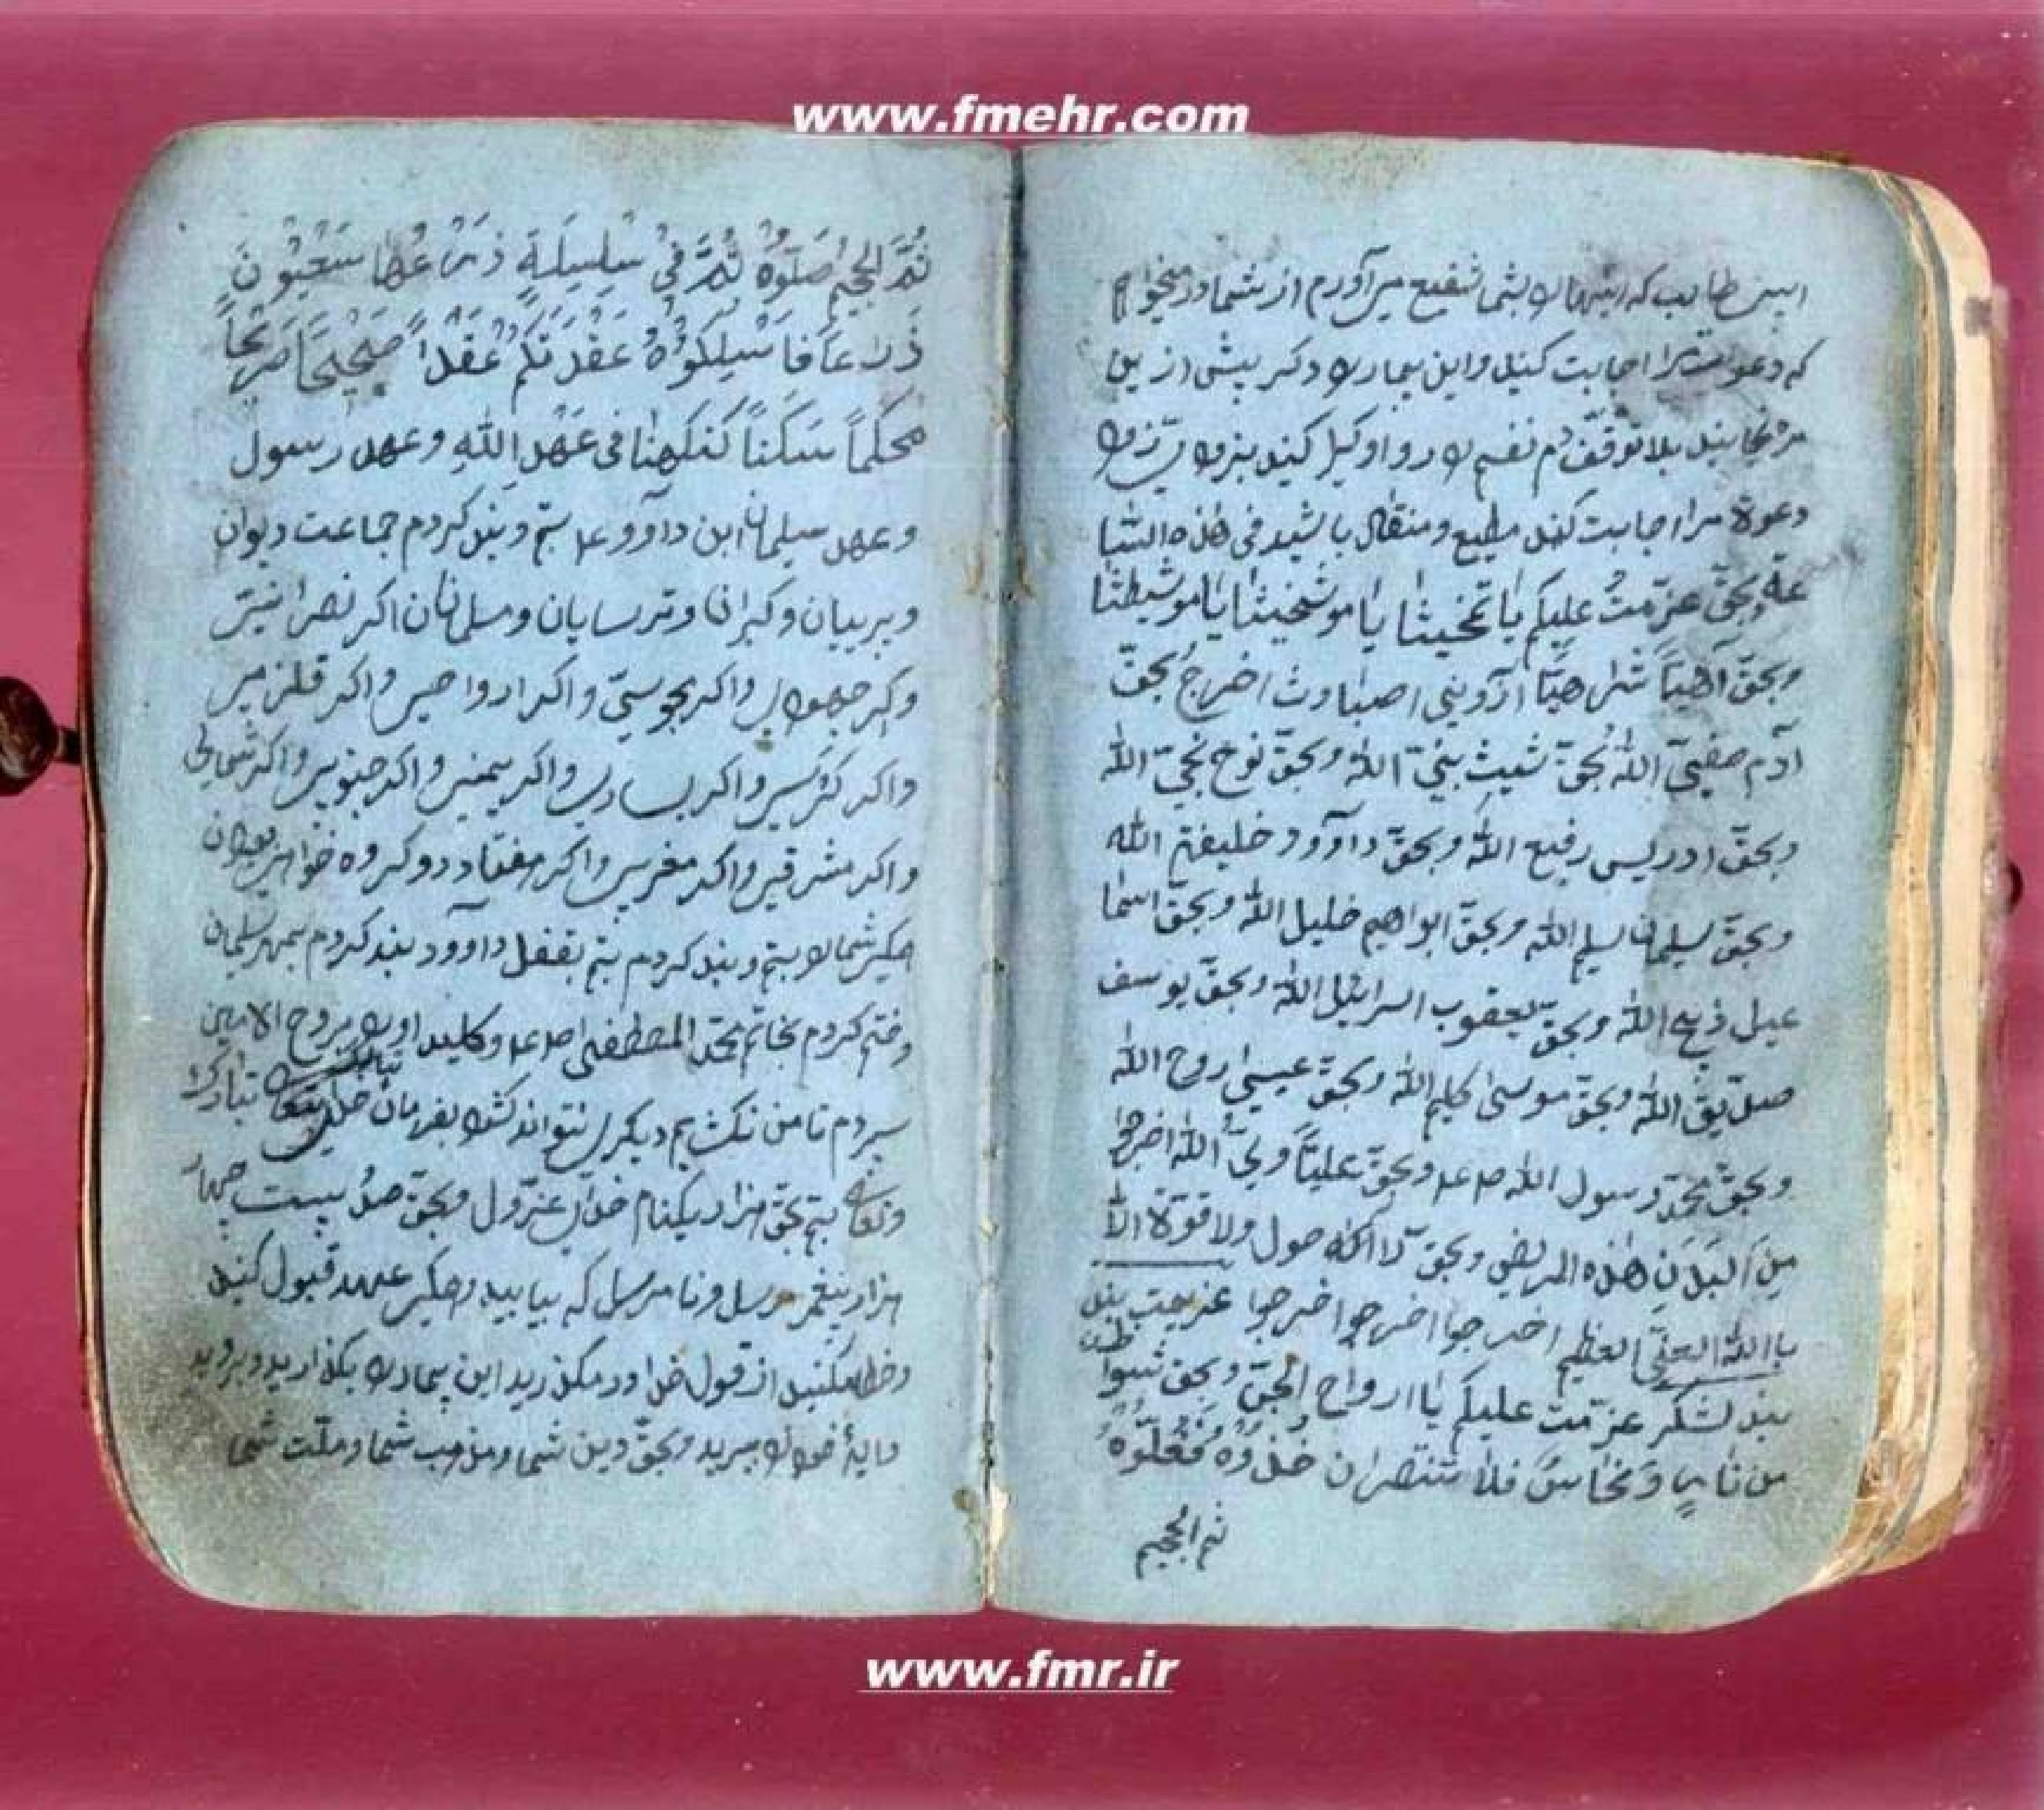 www.fmehr.com
ابن طالب که اینها را بشما شفیع میآورم از شما و میخواهم
که دعوت مرا اجابت کنید و این بیمار را دکر بیش از ین
مرنجانید بلا توقف دم نفسم را روا وکیل کنید
دعوة مرا اجابت کنید مطیع و منقاد باشید فی هذه السّا
عة بحقّ عزمتُ علیکم یا تمخیثا یا موشخیثا یا موشیطثا
و بحقّ آهیاً شراهیّا ادونی اصباوث اخرجُ بحقّ
آدم صفیّ اللهُ بحقّ شیث نبیّ اللهُ و بحقّ نوح نجیّ الله
و بحقّ ادریس رفیع اللهُ و بحقّ داوود خلیفة الله
و بحقّ سلیمان سلیم الله و بحقّ ابراهیم خلیل الله و بحقّ اسما
عیل ذبیح الله و بحقّ یعقوب اسرائیل الله و بحقّ یوسف
صدّیق الله و بحقّ موسی کلیم الله و بحقّ عیسی روح الله
و بحقّ محمّد رسول الله ص ع م و بحقّ علیّاً ولیّ الله اخرجوا
مِن اَلبَدَنِ هذه المریض و بحقّ لا حول ولا قوّة الّا
باالله العلیّ العظیم اخرجوا اخرجوا اخرجوا عزیمت بند
بند لشکر عزّمت علیکم یا ارواح الجنّ و بحق شواظ
من نارٍ و نحاسٌ فلا تنتصران خذوُهُ فَغُلّوُهُ
ثم الجحیم
ثُمَّ الجحیمُ صَلّوُهُ ثُمَّ فی سِلسِلَةٍ ذرعُها سَبعُونَ
ذِراعاً فَاسْلِکوُهُ عَقَدتکُم عَقداً صَحیحاً صَریحاً
محکماً فی عَهْدِ اللهِ و عهد رسول
و عهد سلیمان ابن داوود ع م بستم و بند کردم جماعت دیوان
و پریان و کبران و ترسایان و مسلمانان اکر نصرانیی
و اکر جهودی و اکر مجوسیّ و اکر ارواحی و اکر قلزمی
و اکر و اکر یساری و اکر یمینی و اکر جنوبی و اکر شمالی
و اکر مشرقی و اکر مغربی و اکر هفتاد دو کروه خواهی بودن
همکی شما را بستم و بند کردم بستم بقفل داوود بند کردم بمهر سلیمان
و ختم کردم بخاتم محمّد المصطفی ص ع م و کلید او را بروح الامین
سپردم تا من نکشایم دیکری نتواند کشود بفرمان خدای تبارک
و تعالی بستم بحق هزار یکنام خدای عزّوجل و بحقّ صد بیست چهار
هزار پیغمبر مرسل و نا مرسل که بیایید و همکی عهد قبول کنید
و خطا مکنید از قول خدا و در مکذرید این بیمار را بکذارید و بروید
و بحقّ دین شما و مذهب شما و ملّت شما
www.fmr.ir